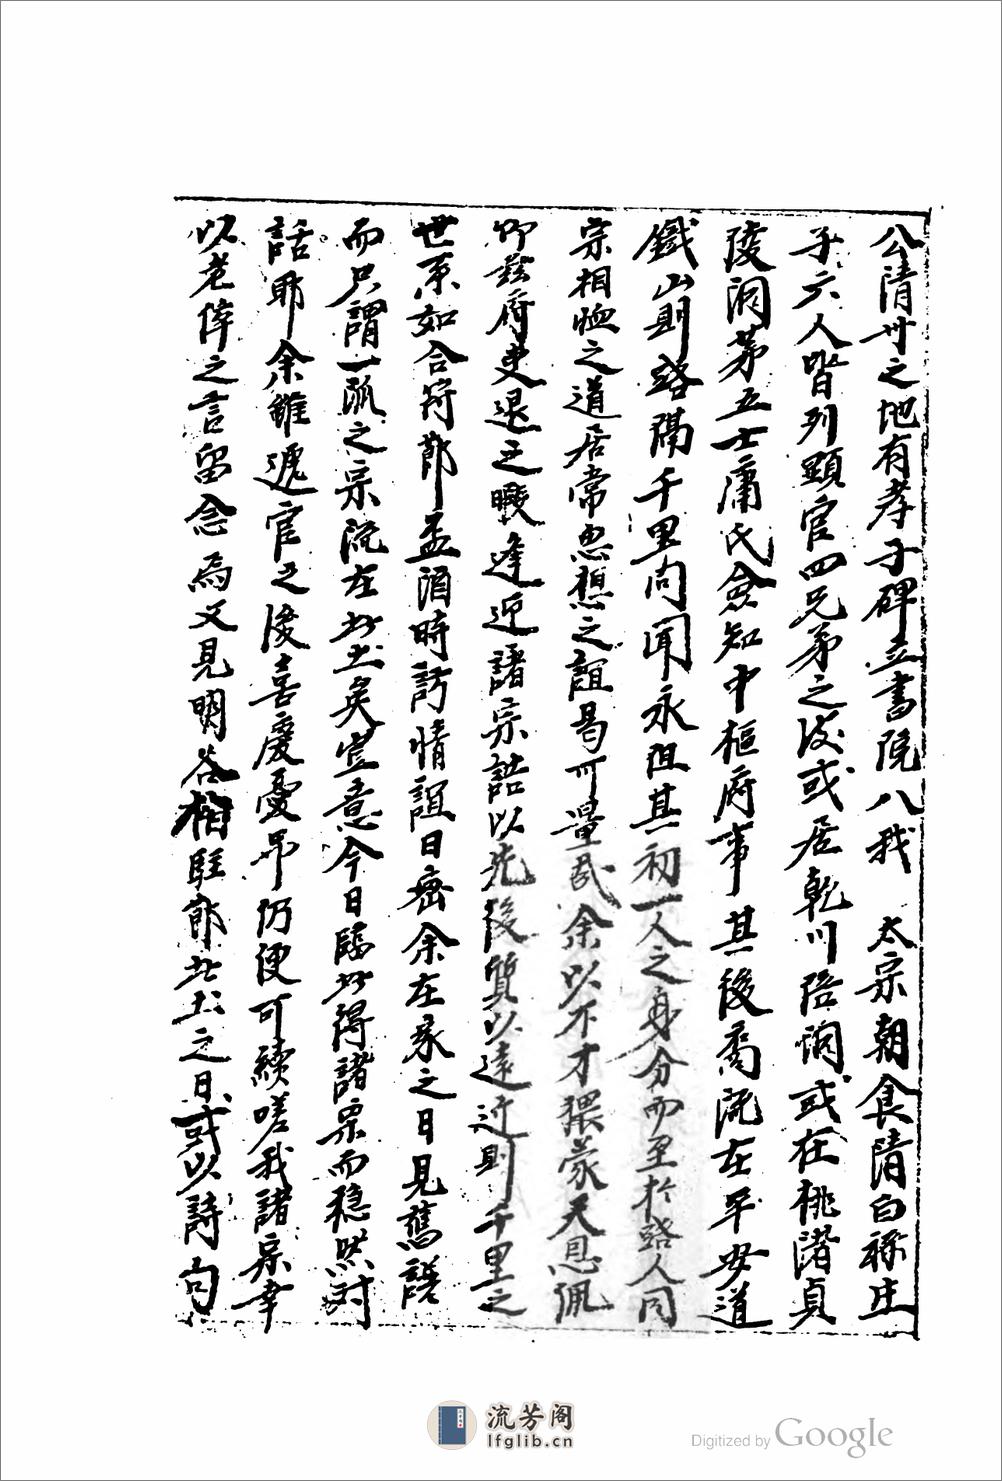 公清州之地有孝子碑立書院入我 太宗朝食清白稱庄
子六人皆列顯官四兄弟之後或居乾川陪洞或在桃渚貞
陵洞第五士庸氏僉知中樞府事其後裔流在平安道
鐵山則路隔千里向聞永阻其初一人之身分而至於路人同
宗相恤之道居常思想之誼曷可量哉余以不才猥蒙天恩佩
印茲府吏退之暇逢迎諸宗語以先後質以遠近則千里之
世系如合符節盃酒時討情誼日密余在家之日見舊譜
而只謂一派之宗流在此土矣豈意今日臨此得諸宗而穩然討
話耶余雖遞官之後喜慶憂吊仍便可續嗟我諸宗幸
以老倅之言留念焉又見明谷相駐節北土之日或以詩句
流芳阁
lfglib.cn
Digitized by Google